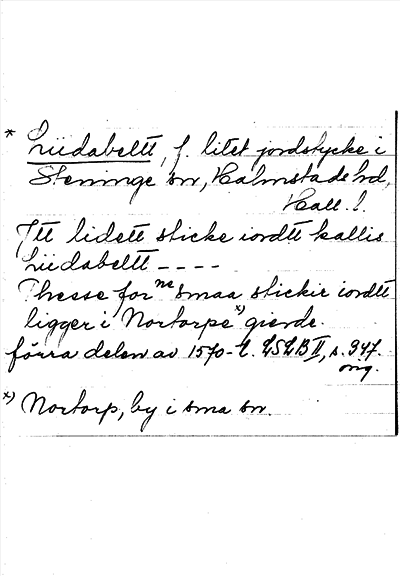 * Liidabeltt, f. litet jordstycke i
Steninge sn, Halmstads hd,
Hall. l.
Itt lidett sticke iordtt kallis
Liidabeltt ----
Thesse for ne smaa stickir iordtt
ligger i Nortorps x) gierde.
förra delen av 1570-t. LSLB II, s. 347.
orig.
x) Nortorp, by i sma sn.